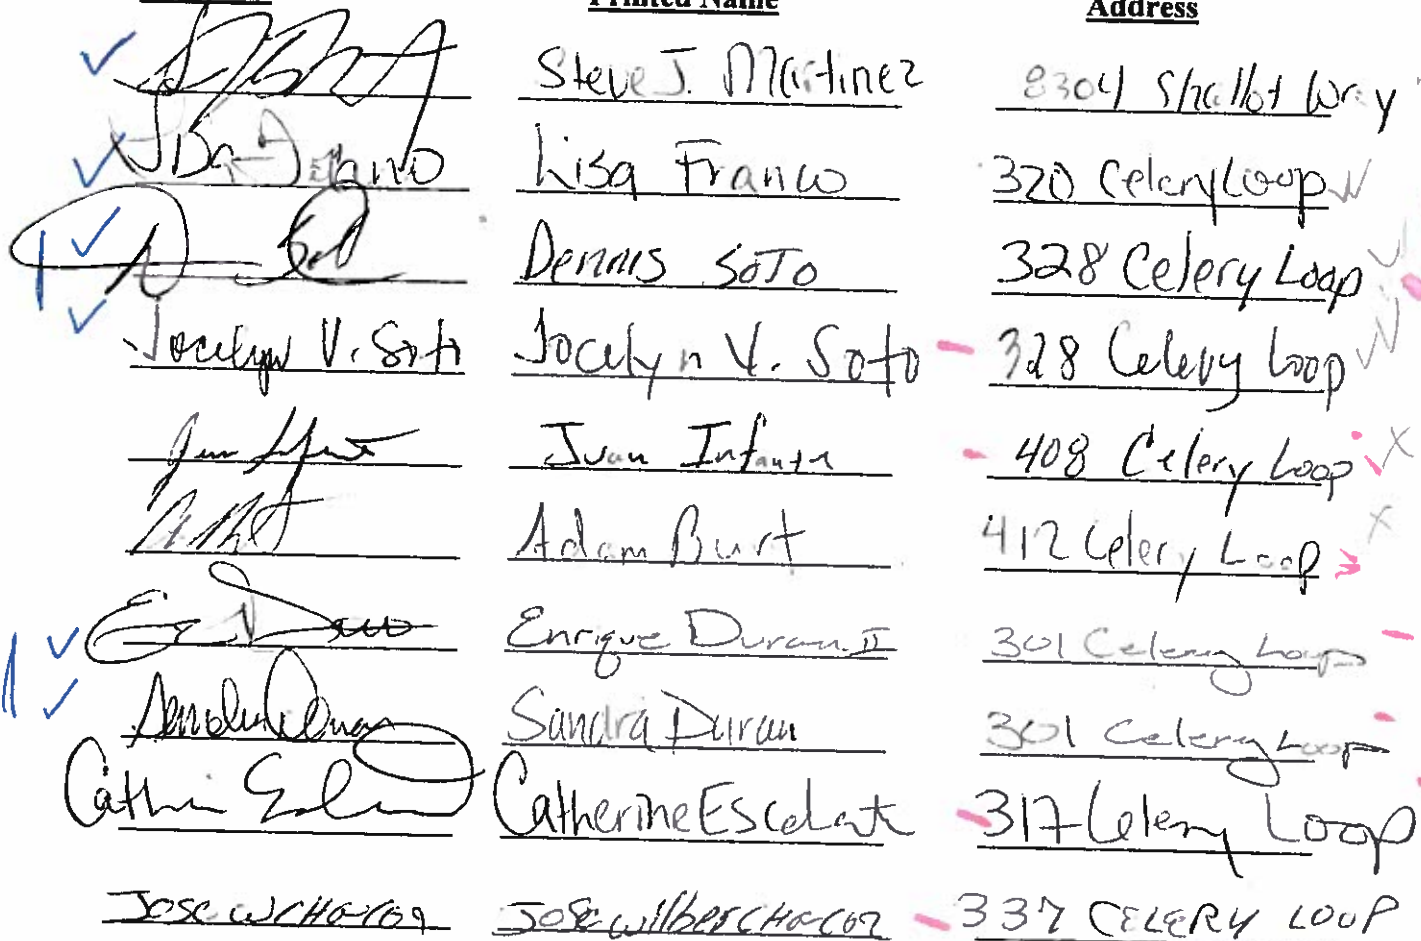 Printed Name Address
Steve J. Martinez 8304 Shallot Way
Lisa Franco 320 Celery Loop
Dennis Soto 328 Celery Loop
Jocelyn V. Soto Jocelyn V. Soto 328 Celery Loop
Juan Infante 408 Celery Loop
Adam Burt 412 Celery Loop
Enrique Duran II 301 Celery Loop
Sandra Duran 301 Celery Loop
Catherine Escalante 317 Celery Loop
Jose Jose Wilber 337 CELERY LOOP